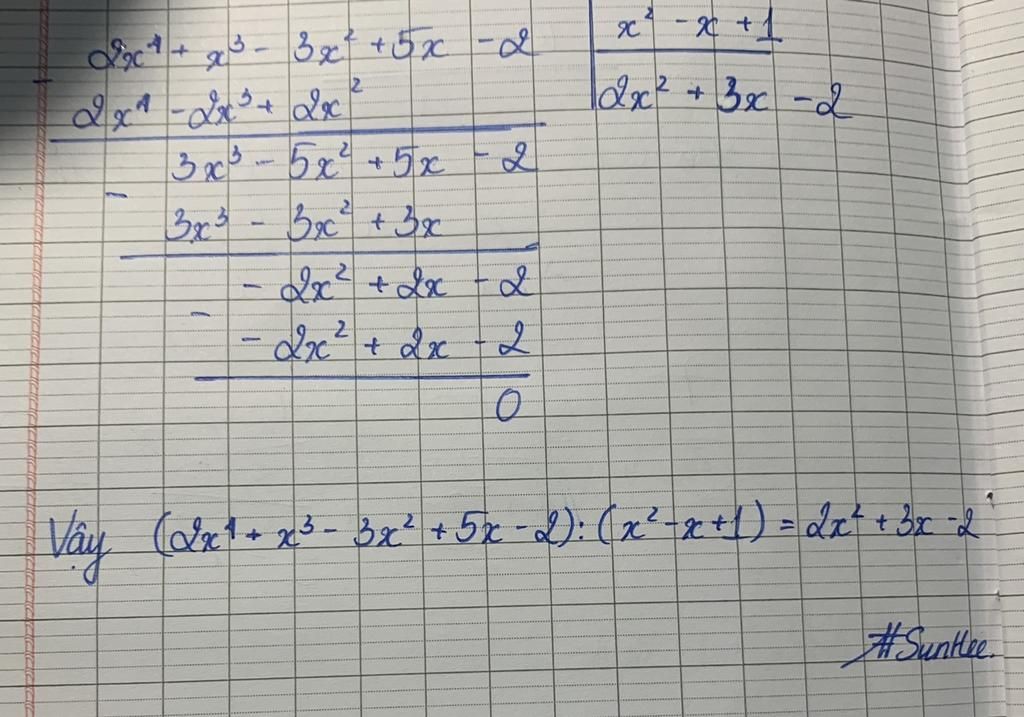 2x⁴ + x³ - 3x² + 5x - 2 | x² - x + 1
- 2x⁴ - 2x³ + 2x² | 2x² + 3x - 2
3x³ - 5x² + 5x - 2
-
3x³ - 3x² + 3x
- 2x² + 2x - 2
-
- 2x² + 2x - 2
0
Vậy (2x⁴ + x³ - 3x² + 5x - 2) : (x² - x + 1) = 2x² + 3x - 2
#SunHee.